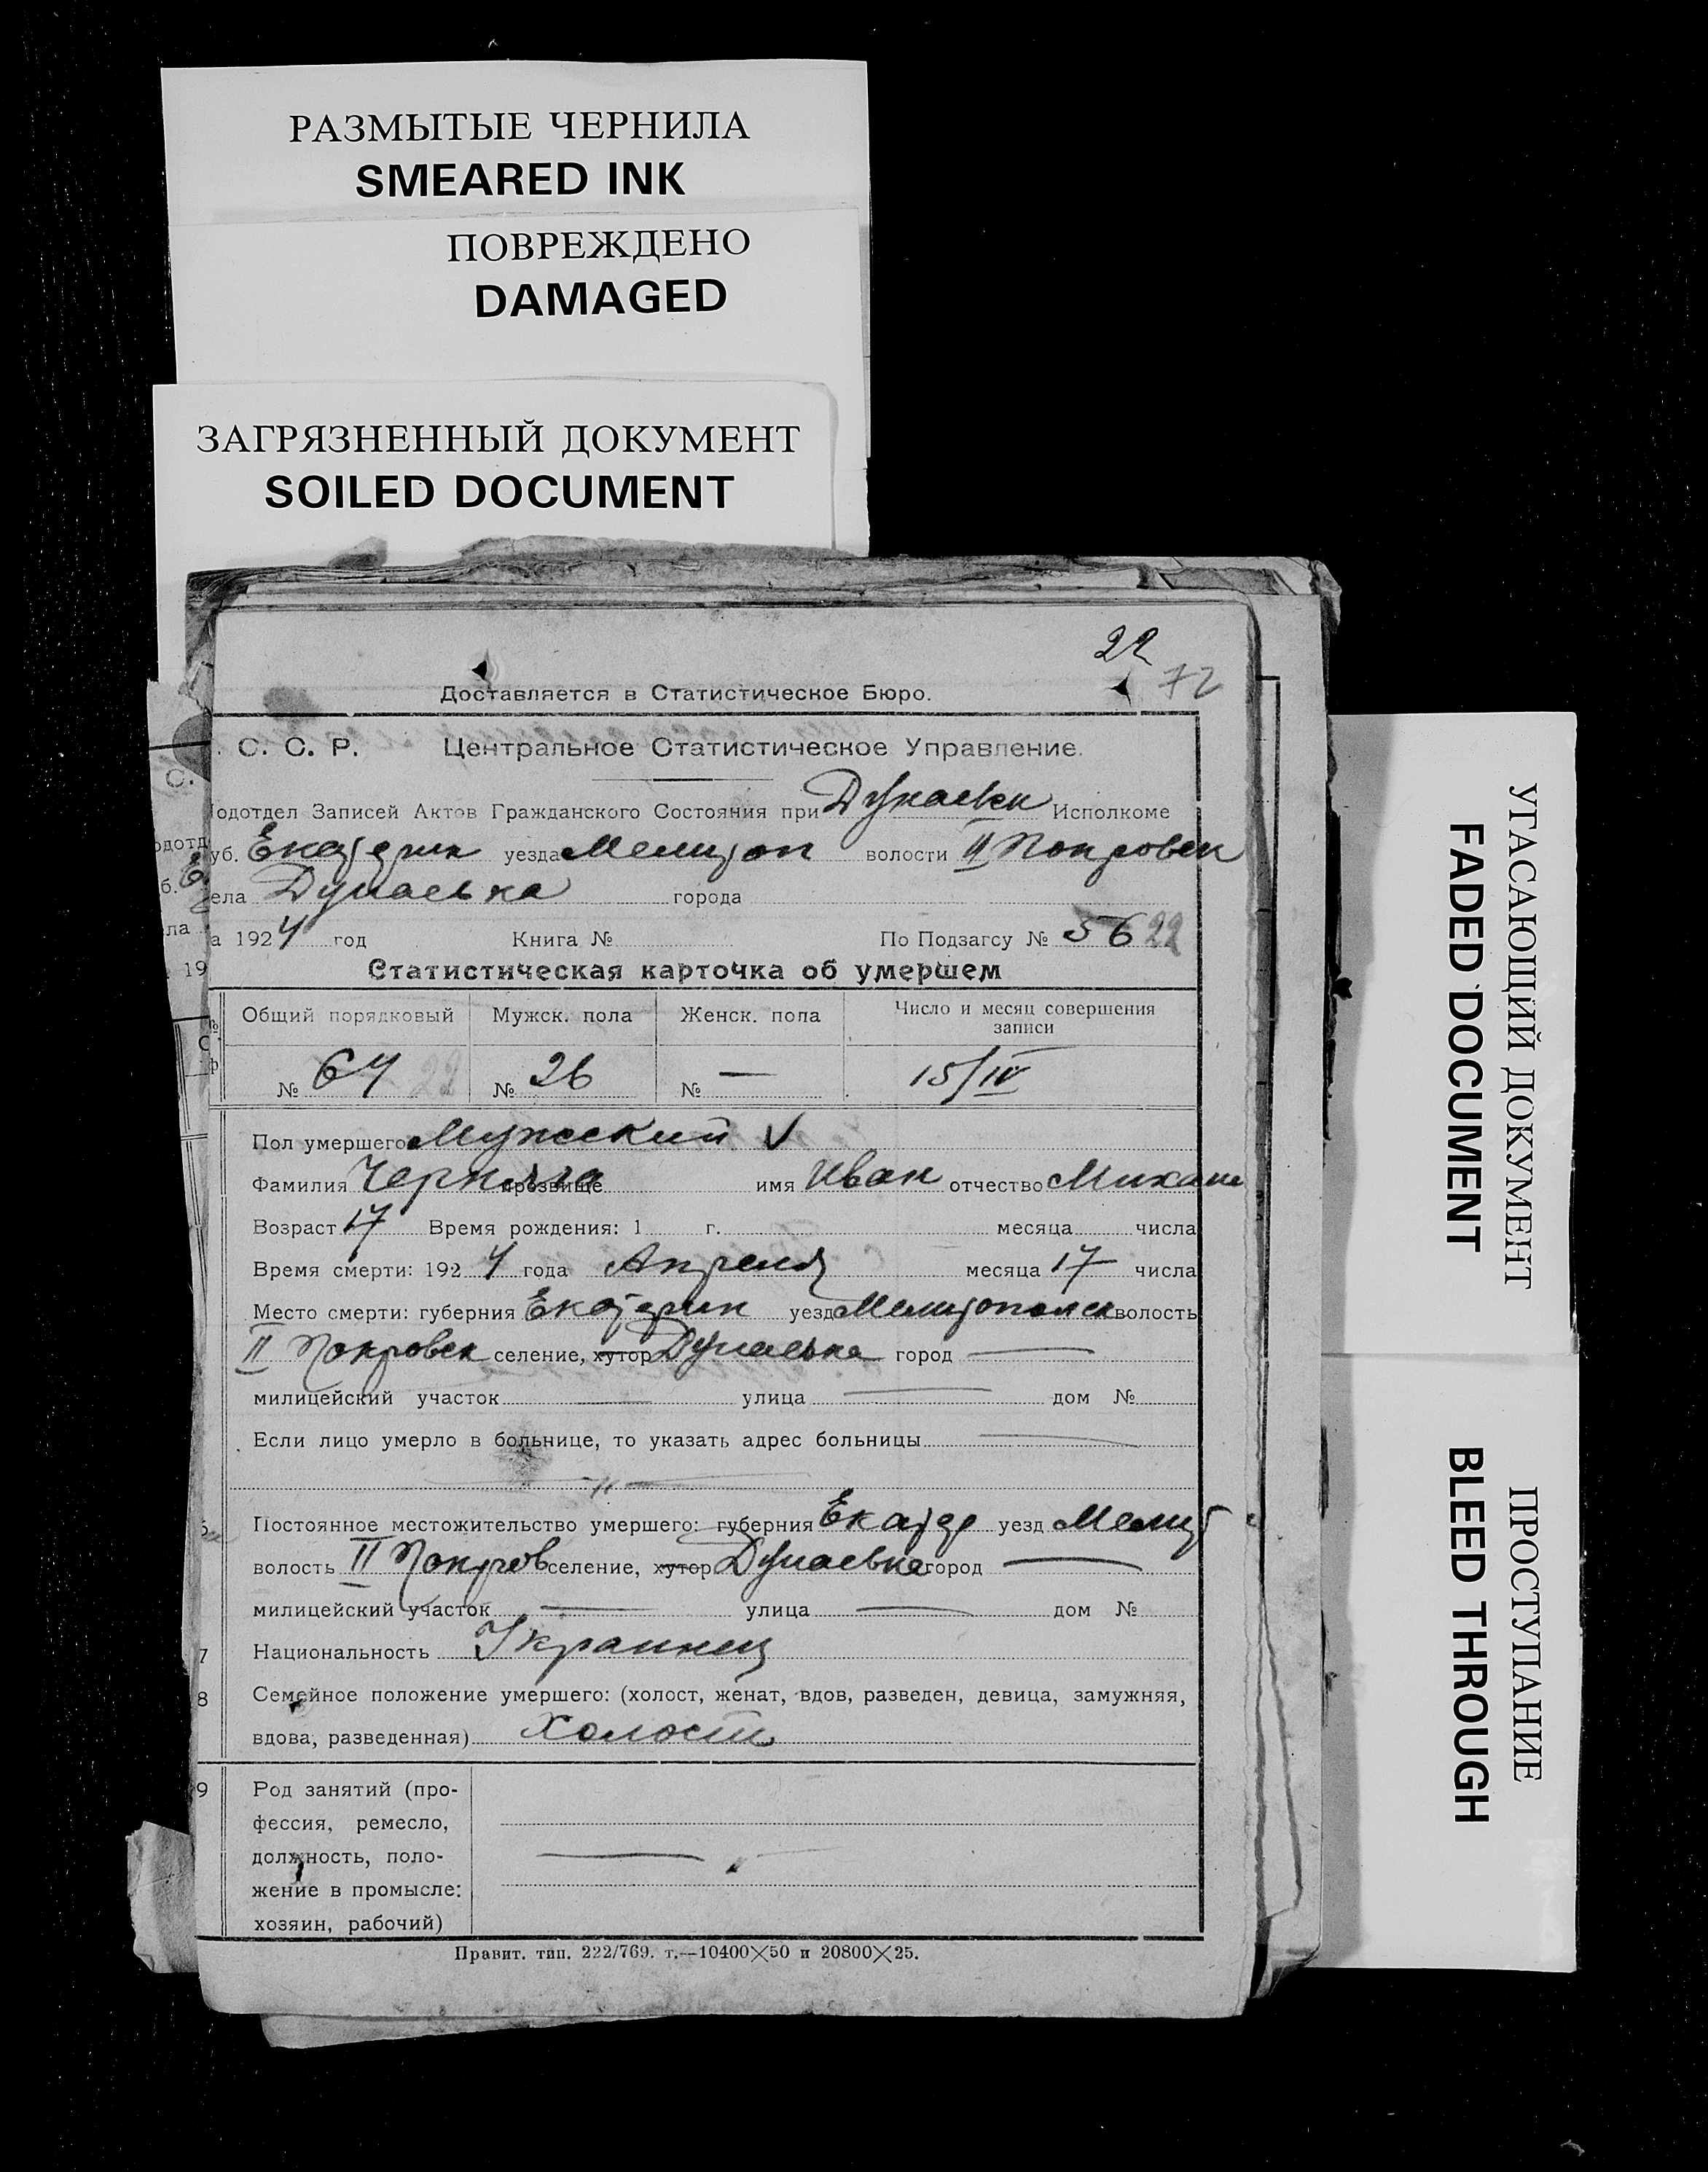 РАЗМЫТЫЕ ЧЕРНИЛА
SMEARED INK
ПОВРЕЖДЕНО
DAMAGED
ЗАГРЯЗНЕННЫЙ ДОКУМЕНТ
SOILED DOCUMENT
22
72
Доставляется в Статистическое Бюро.
. С. С. Р. Центральное Статистическое Управление.
одотдел Записей Актов Гражданского Состояния при Дунаевск Исполкоме
уб. Екатерин уезда Мелитоп волости II Покровск
ела Дунаевка города
а 1924 год Книга № По Подзагсу № 56 22
Статистическая карточка об умершем
Общий порядковый Мужск. пола Женск. пола Число и месяц совершения
записи
№ 64 22 № 26 № — 15/IV
Пол умершего Мужеский V
Фамилия прозвище имя Иван отчество Михаи
Возраст 17 Время рождения: 1 г. месяца числа
Время смерти: 1924 года Апреля месяца 17 числа
Место смерти: губерния Екатерин уезд Мелитопольск волость
II Покровск селение, хутор Дунаевка город —
милицейский участок — улица — дом №
Если лицо умерло в больнице, то указать адрес больницы —
— " —
Постоянное местожительство умершего: губерния Екатер уезд Мелит
волость II Покров селение, хутор Дунаевка город —
милицейский участок — улица — дом №
7 Национальность Украинец
8 Семейное положение умершего: (холост, женат, вдов, разведен, девица, замужняя,
вдова, разведенная) Холост
9 Род занятий (про-
фессия, ремесло,
должность, поло-
жение в промысле:
хозяин, рабочий)
—
Правит. тип. 222/769. т.—10400×50 и 20800×25.
УГАСАЮЩИЙ ДОКУМЕНТ
FADED DOCUMENT
ПРОСТУПАНИЕ
BLEED THROUGH